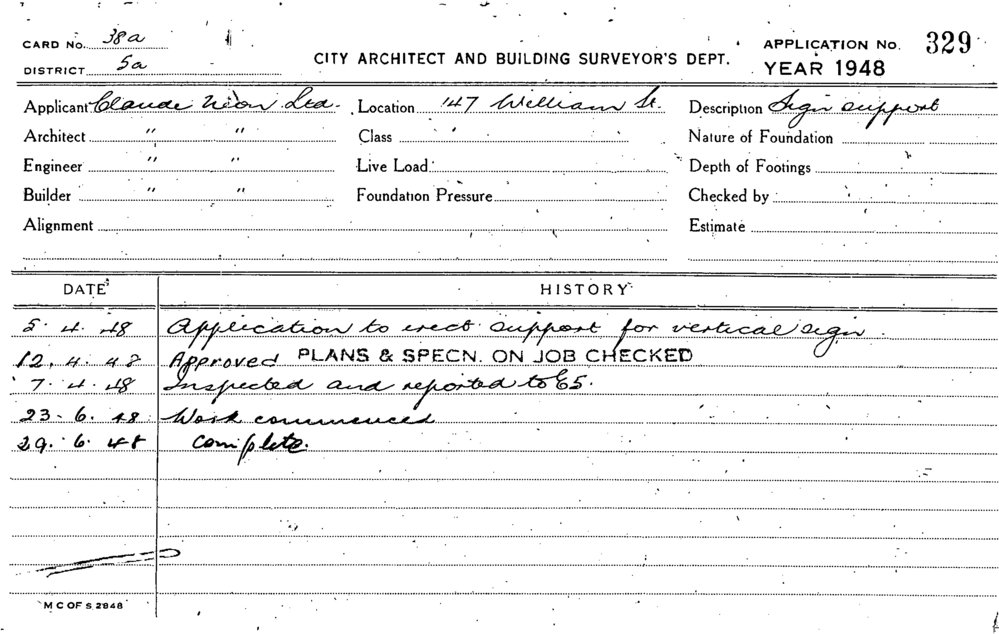 CARD No. 38a
DISTRICT 5a
CITY ARCHITECT AND BUILDING SURVEYOR'S DEPT.
APPLICATION No. 329
YEAR 1948
Applicant Claude Neon Ltd. Location 147 William St. Description Sign support
Architect " " Class Nature of Foundation
Engineer " " Live Load Depth of Footings
Builder " " Foundation Pressure Checked by
Alignment Estimate
DATE HISTORY
5. 4. 48 Application to erect support for vertical sign.
12. 4. 48 Approved PLANS & SPECN. ON JOB CHECKED
7. 4. 48 Inspected and reported to E5.
23. 6. 48 Work commenced
29. 6. 48 complete.
M C OF S 2848